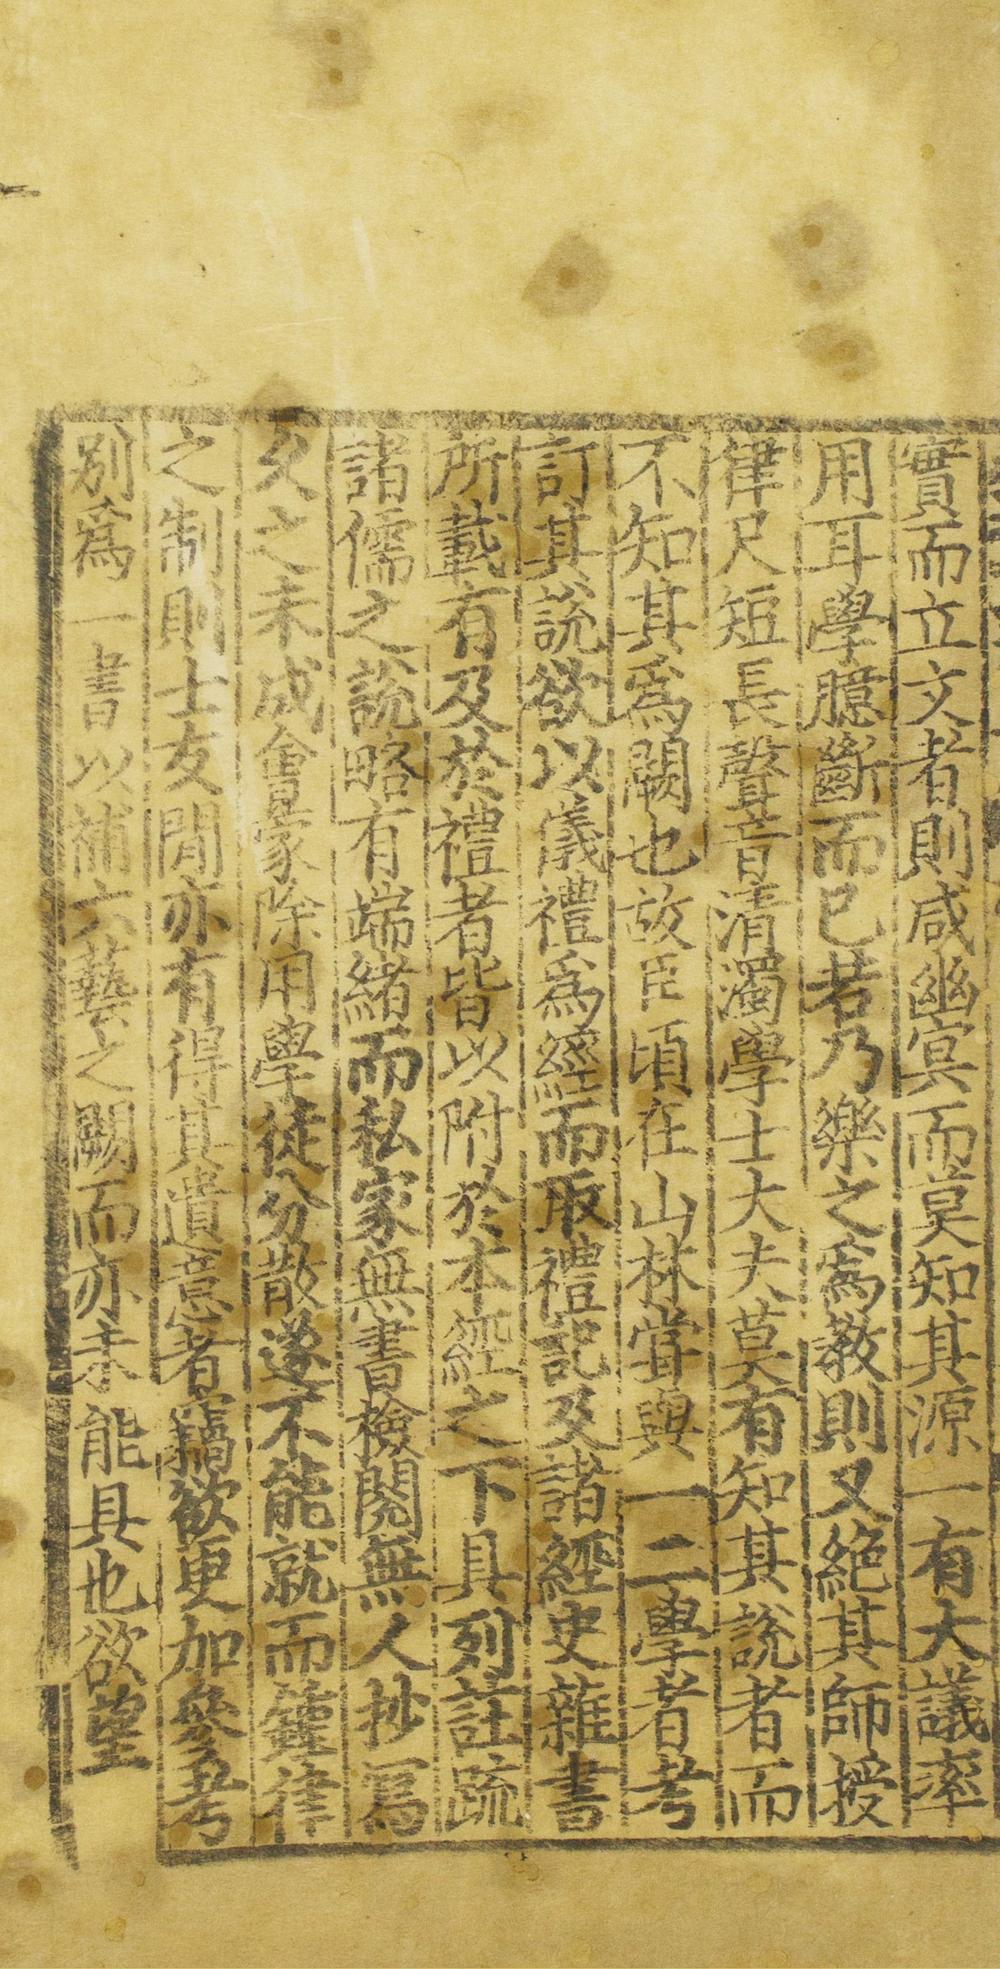 實而立文者則咸幽冥而莫知其源一有大議率
用耳學臆斷而已若乃樂之爲教則又絶其師授
律尺短長聲音清濁學士大夫莫有知其説者而
不知其爲闕也故臣頃在山林甞與一二學者考
訂其説欲以儀禮爲經而取禮記及諸經史雜書
所載有及於禮者皆以附於本經之下具列註疏
諸儒之説略有端緒而私家無書檢閱無人抄寫
久之未成會蒙除用學徒分散遂不能就而鍾律
之制則士友間亦有得其遺意者竊欲更加參考
别爲一書以補六藝之闕而亦未能具也欲望